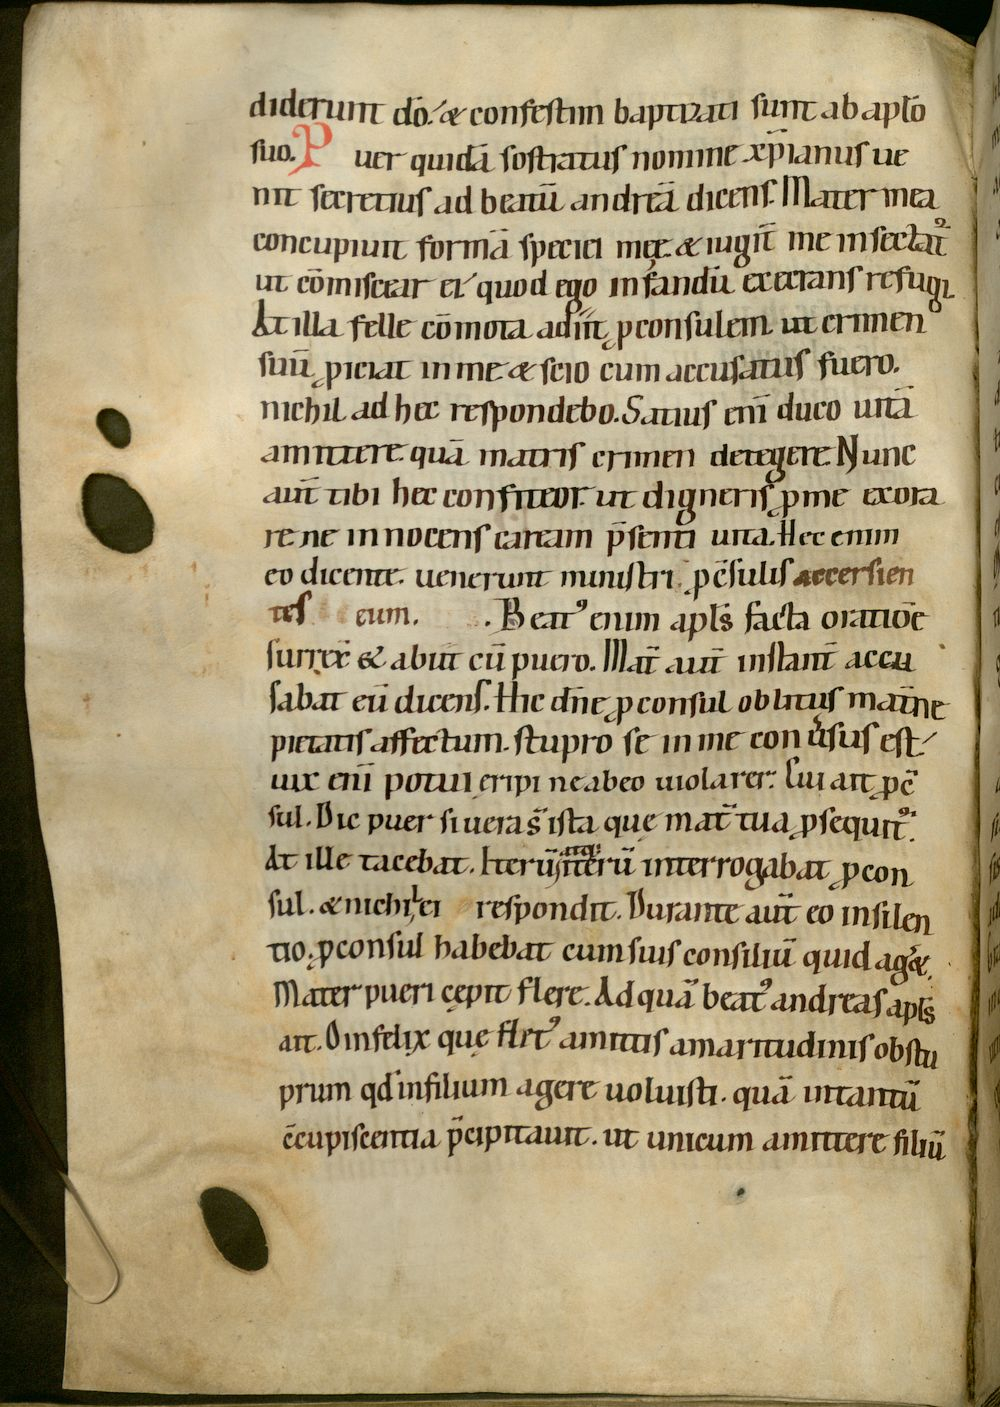 diderunt dō. & confestim baptizati sunt ab aplō
suo. Puer quidā sostratus nomine xp̄ianus ue
nit secretius ad beatū andreā dicens. Mater mea
concupiuit formā speciei męę. & iugit̄ me insectat᷒
ut cōmiscear ei. quod ego infandū execrans refugi.
At illa felle cōmota adiit ꝓconsulem. ut crimen
suū ꝓiciat in me. & scio cum accusatus fuero.
nichil ad hec respondebo. Satius enī duco uitā
amittere. quā matris crimen detegere. Nunc
aut̄ tibi hec confiteor. ut digneris ꝓ me exora
re. ne innocens caream p̄senti uita. Hec enim
eo dicente. uenerunt ministri ꝓc̄sulis accersien
tes eum. Beat᷒ enim apl̄s facta oratiōe
surrex̄ & abiit cū puero. Mat̄ aut̄ instant̄ accu
sabat eū dicens. Hic dn̄e ꝓconsul oblitus mat̄ne
pietatis affectum. stupro se in me conūsus est.
uix enī potui eripi ne abeo uiolarer. Cui ait ꝓc̄
sul. Dic puer si uera s̄ ista que mat̄ tua ꝓsequit᷒.
At ille tacebat. Iterū atq; iterū interrogabat ꝓcon
sul. & nichil ei respondit. Durante aut̄ eo in silen
tio. ꝓconsul habebat cum suis consiliū quid aḡ&.
Mater pueri cępit flere. Ad quā beat᷒ andreas apl̄s
ait. O infelix quę flet᷒ amittis amaritudinis ob stu
prum qd̄ in filium agere uoluisti. quā intantū
c̄cupiscentia p̄cipitauit. ut unicum amittere filiū